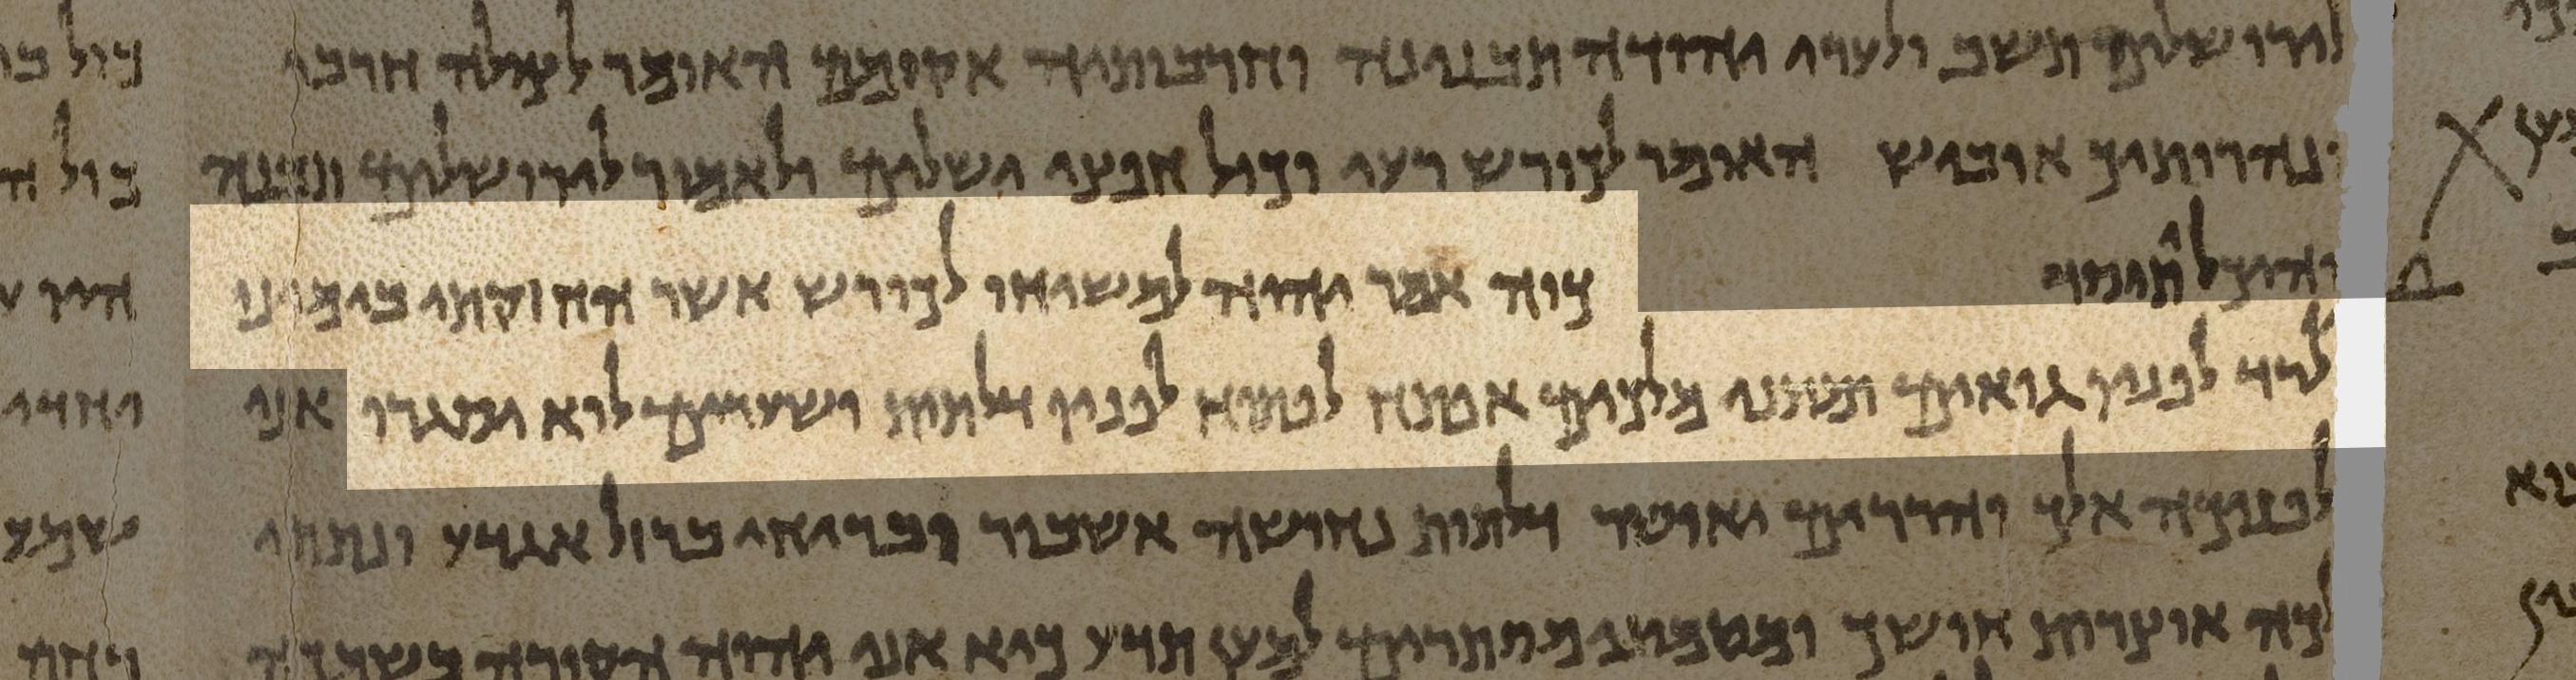 לירושלים תשב ולערי יהודה תבנינה וחרבותיה אקומם האומר לצולה חרבי
ונהרותיך אוביש האומר לכורש רעי וכול חפצי ישלים ולאמור לירושלים תבנה
והיכל תיוסד כוה אמר יהוה למשיחו לכורש אשר החזקתי בימינו
לרד לפניו גואים ומתני מלכים אפתח לפתח לפניו דלתות ושערים לוא יסגרו אני
לפניכה אלך והררים יאושר דלתות נחושה אשבור ובריחי ברזל אגדע ונתתי
לכה אוצרות חושך ומטמוני מסתרים למען תדע כיא אני יהוה הקורה בשמכה